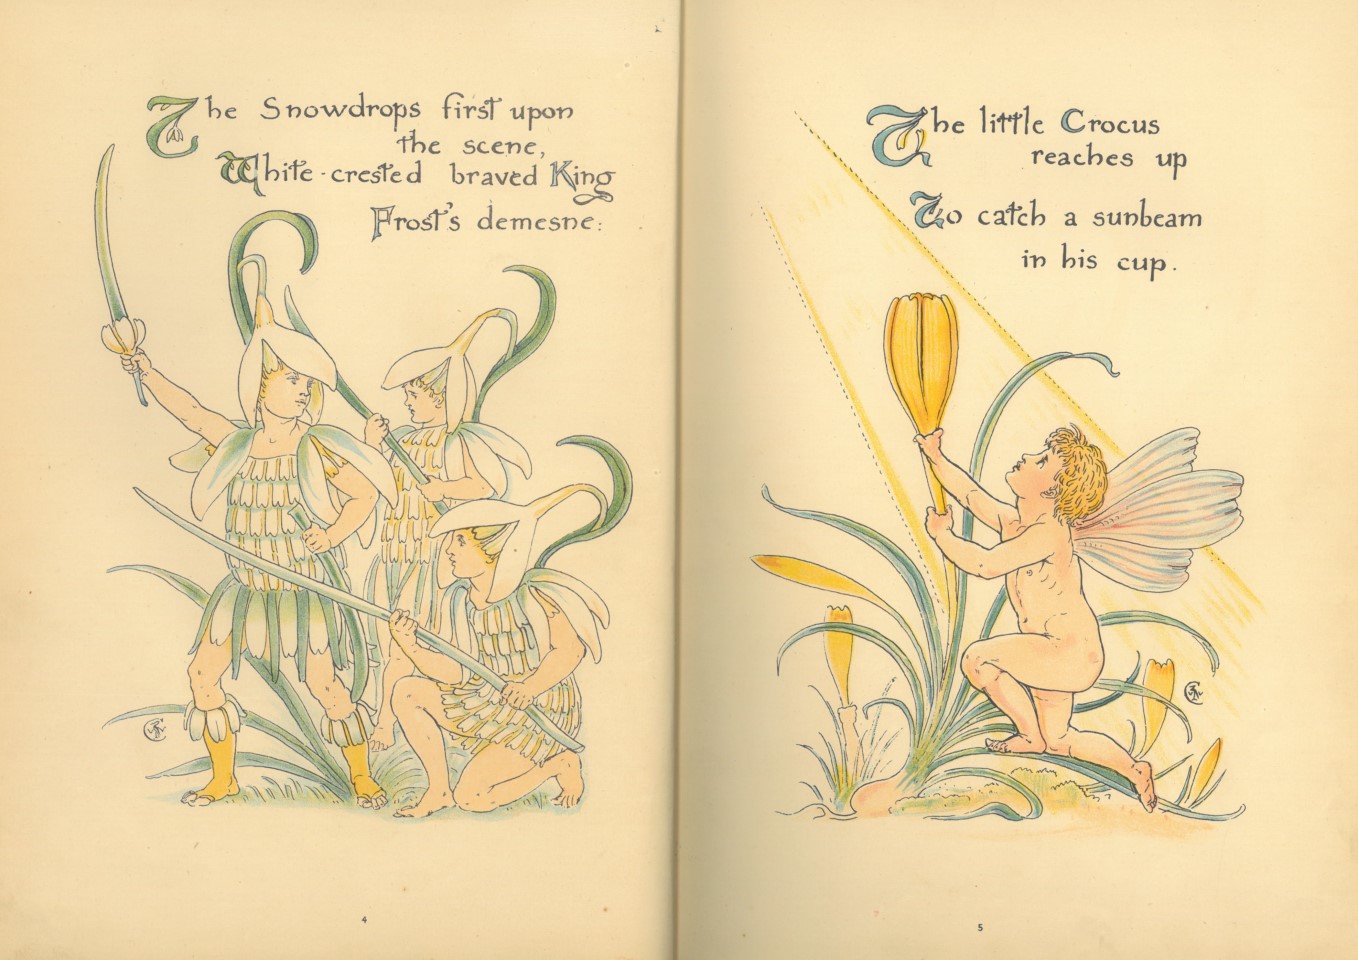 The Snowdrops first upon
the scene,
White-crested braved King
Frost's demesne:
4
The little Crocus
reaches up
To catch a sunbeam
in his cup.
5